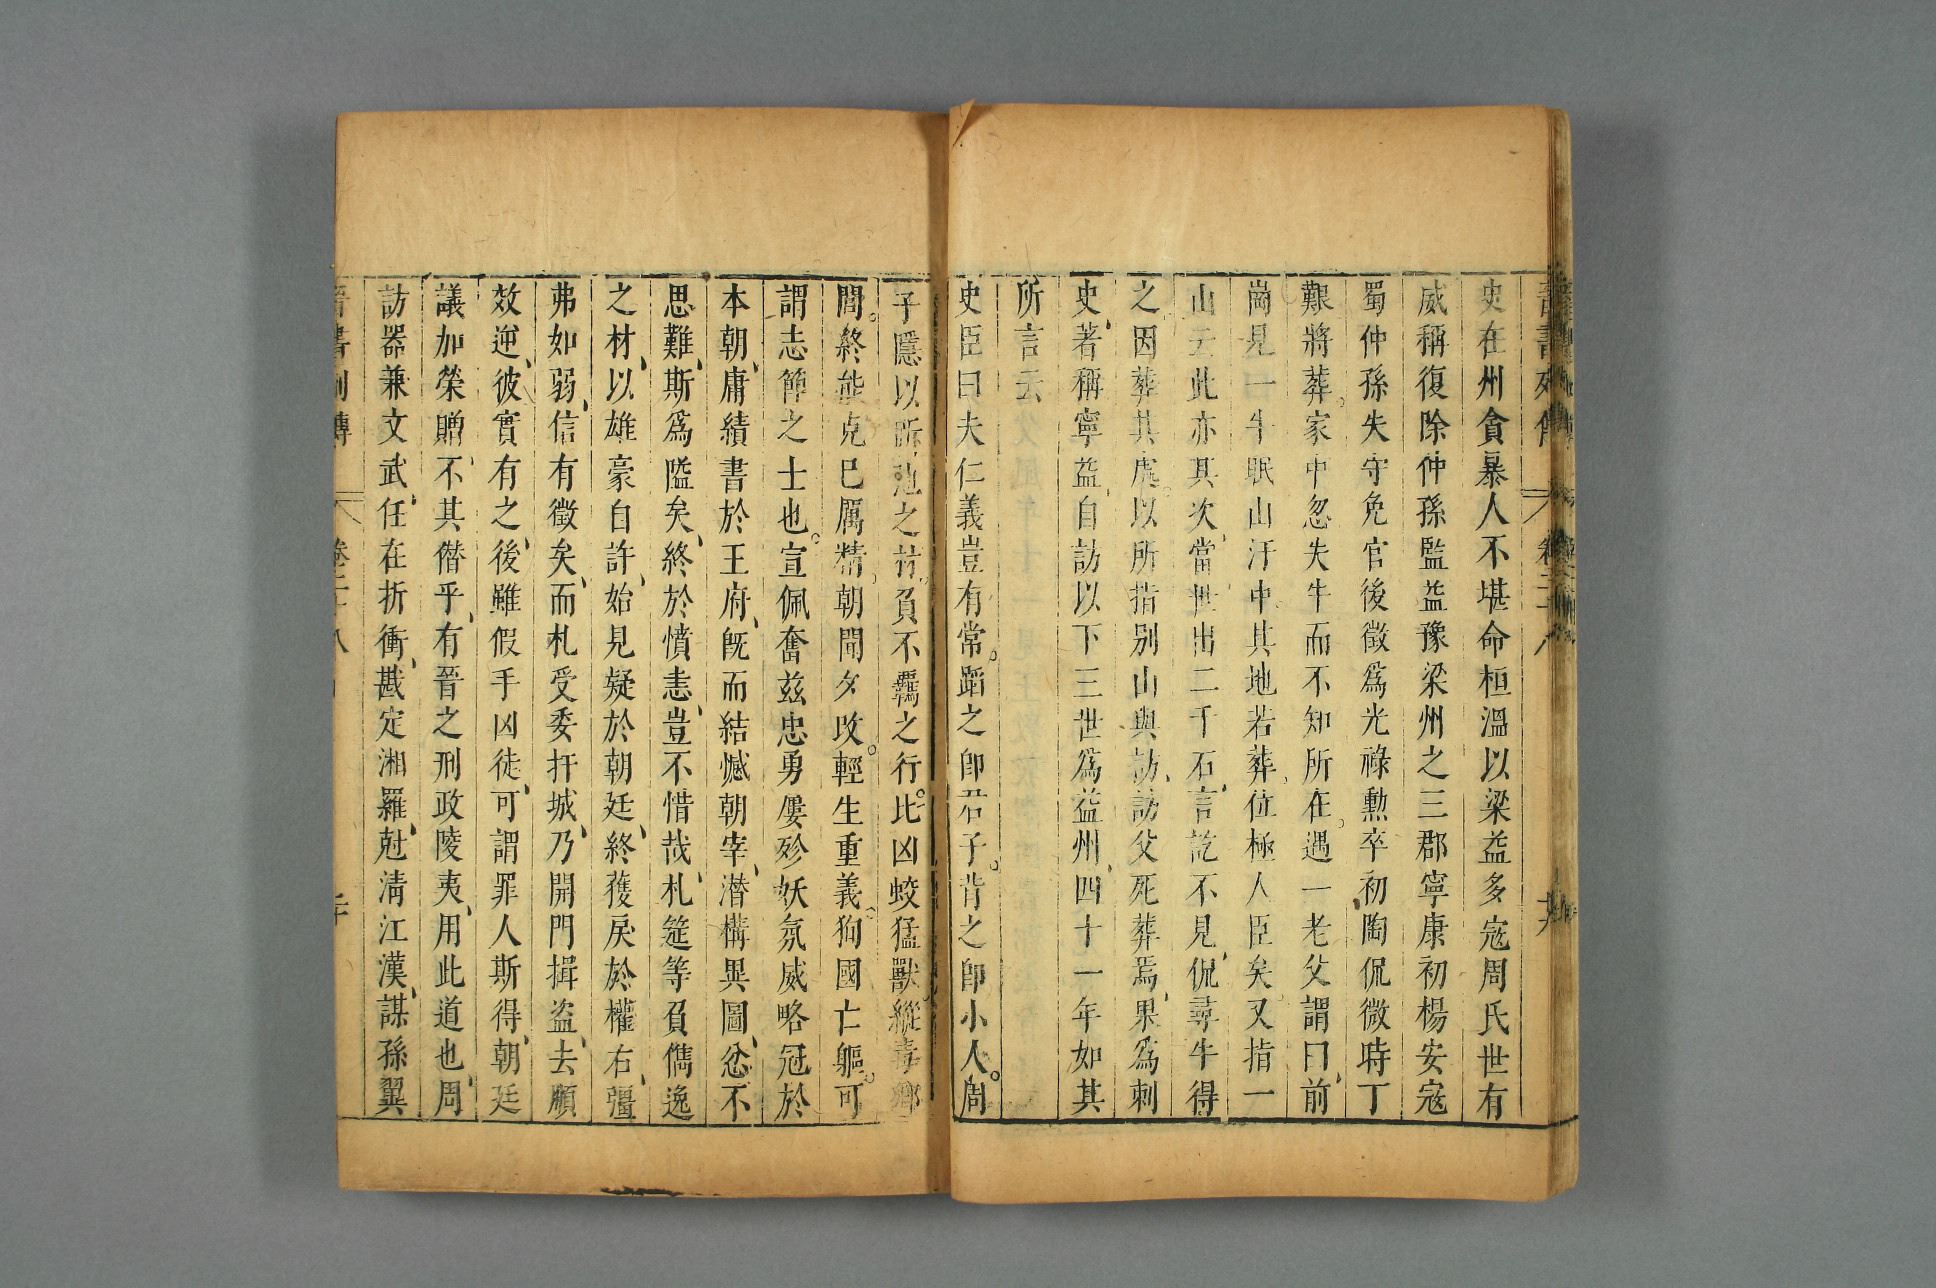 晉書列傳 卷二十八
史在州貪暴人不堪命桓溫以梁益多寇周氏世有
威稱復除仲孫監益豫梁州之三郡寧康初楊安寇
蜀仲孫失守免官後徵爲光祿勲卒初陶侃微時丁
艱將葬家中忽失牛而不知所在遇一老父謂曰前
崗見一牛眠山汙中其地若葬位極人臣矣又指一
山云此亦其次當世出二千石言訖不見侃尋牛得
之因葬其處以所指别山與訪訪父死葬焉果爲刺
史著稱寧益自訪以下三世爲益州四十一年如其
所言云
史臣曰夫仁義豈有常蹈之卽君子背之卽小人周
子隱以跅弛之材負不羈之行比凶蛟猛獸縱毒鄉
閭終能克己厲精朝聞夕改輕生重義狥國亡軀可
謂志節之士也宣佩奮兹忠勇屢殄妖氛威略冠於
本朝庸績書於王府旣而結憾朝宰潜構異圖忿不
思難斯爲隘矣終於憤恚豈不惜哉札筵等負儁逸
之材以雄豪自許始見疑於朝廷終獲戾於權右彊
弗如弱信有徵矣而札受委扞城乃開門揖盗去順
效逆彼實有之後雖假手凶徒可謂罪人斯得朝廷
議加榮贈不其僭乎有晉之刑政陵夷用此道也周
訪器兼文武任在折衝戡定湘羅尅清江漢謀孫翼
晉書列傳 卷二十八 二十